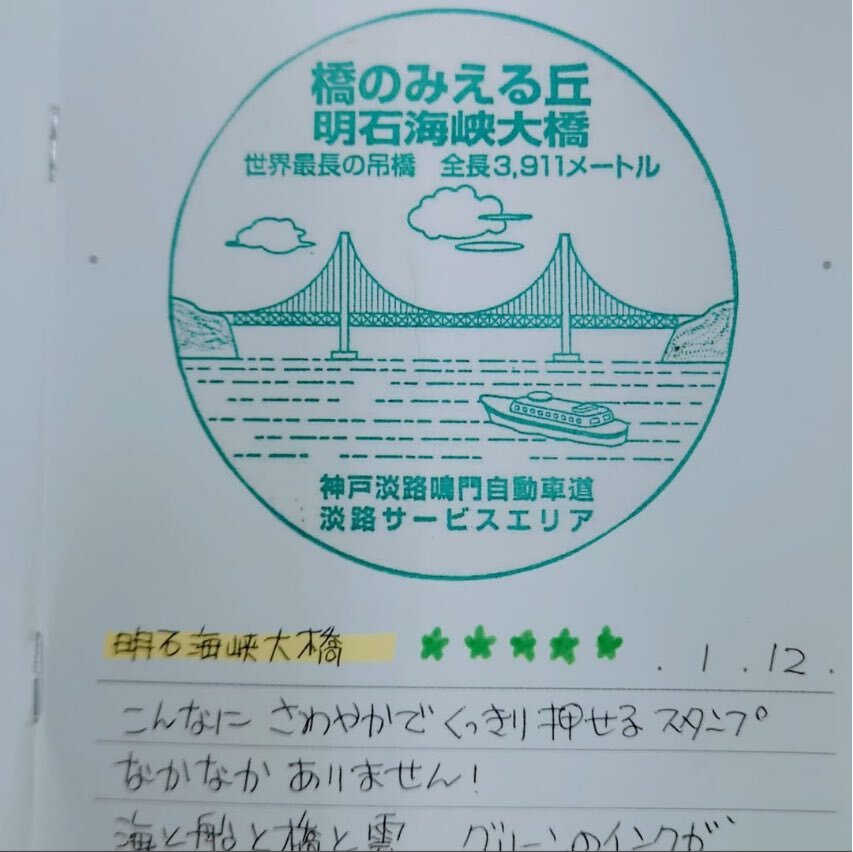 橋のみえる丘
明石海峡大橋
世界最長の吊橋 全長3,911メートル
神戸淡路鳴門自動車道
淡路サービスエリア
明石海峡大橋 ★★★★★ .1.12.
こんなに さわやかで くっきり 押せる スタンプ
なかなか ありません!
海と船と橋と雲 グリーンのインクが